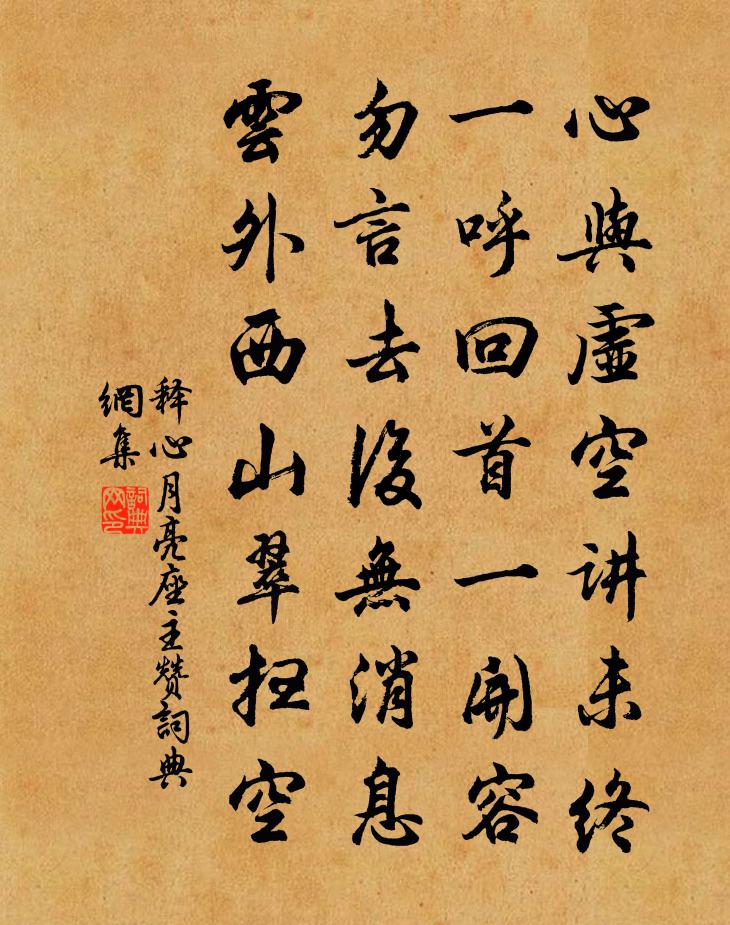 心與虛空讲未终
一呼回首一開容
勿言去後無消息
雲外西山翠扫空
释心月亮座主赞詞典
網集
詞典
网印